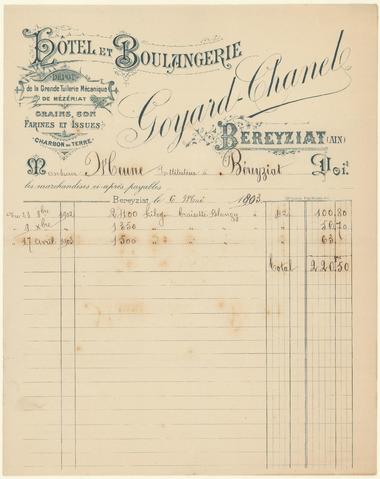 HÔTEL ET BOULANGERIE
DÉPÔT
de la Grande Tuilerie Mécanique
DE MÉZÉRIAT
GRAINS, SON
FARINES ET ISSUES
CHARBON DE TERRE
Goyard-Chanel
BEREYZIAT (AIN)
Monsieur Meune Instituteur à Béreyziat Doit
les marchandises ci-après payables
Bereyziat, le 6 Mai 1903
8bre 1902 2400 Kilogs Blanzy à 42 100,80
1 Xbre " 1350 " " " " 56,70
17 Avril 1903 1500 " " " " 63,"
Total 220.50